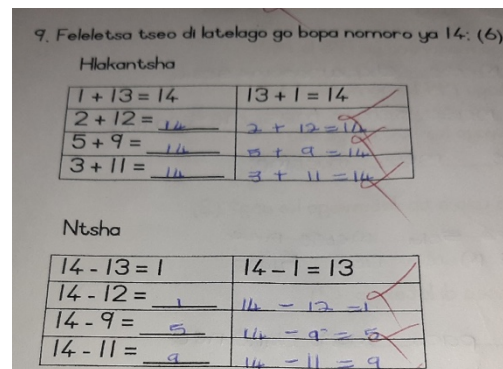 9. Feleletsa tseo di latelago go bopa nomoro ya 14: (6)
Hlakantsha
1 + 13 = 14 13 + 1 = 14
2 + 12 = 14 2 + 12 = 14
5 + 9 = 14 5 + 9 = 14
3 + 11 = 14 3 + 11 = 14
Ntsha
14 - 13 = 1 14 - 1 = 13
14 - 12 = 1 14 - 12 = 1
14 - 9 = 5 14 - 9 = 5
14 - 11 = 9 14 - 11 = 9